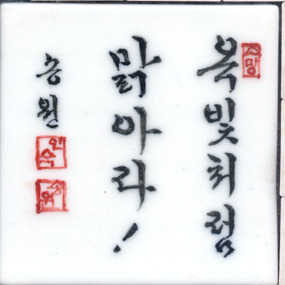 소망
옥빛처럼
맑아라!
승원